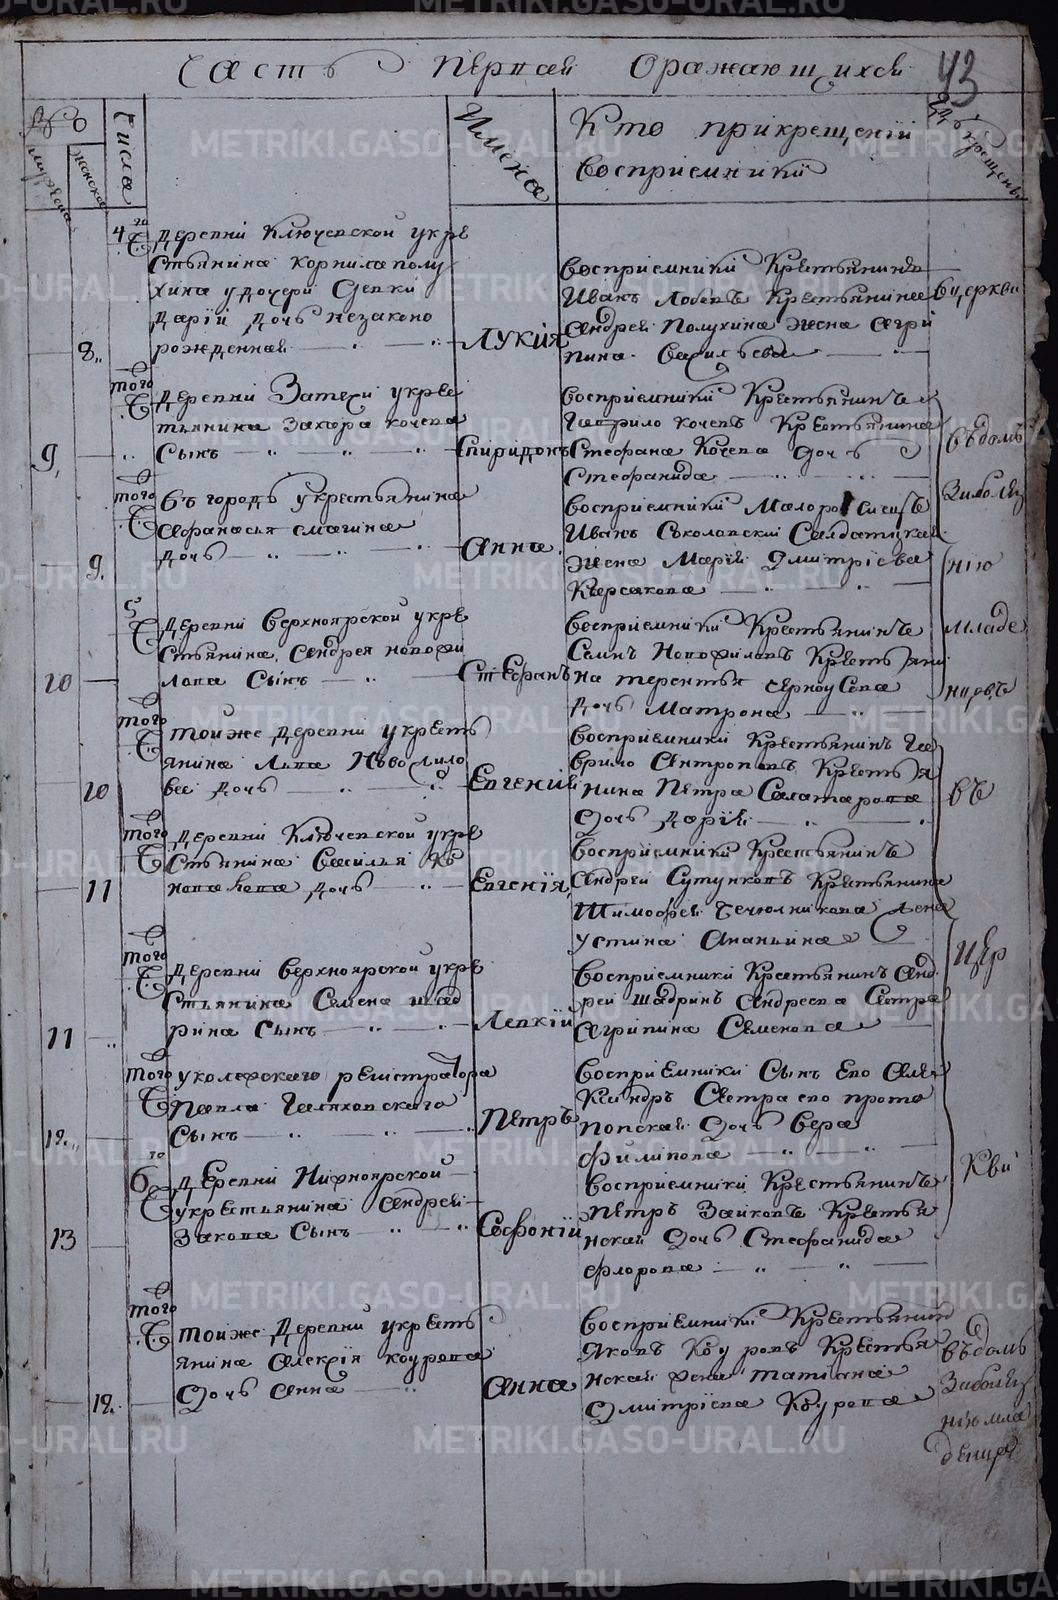 Часть Первая Оражающихся
43
Число
мужеска
женска
Числа
Имена
Кто прикрещении
восприемники
гдѣ крещены
4го Деревни Ключевской укре
стьянина корнила полу
хина у дочери Девки
Дарiи Дочь незаконо
8 рожденная
Лукия
восприемники Крестьянинъ
Иванъ Лобовъ Крестьянина
Андрея Полухина жена Агри
пина Васильева
в церкви
того Деревни Затечи укрес
тьянина Захара кочева
9 Сынъ
Спиридонъ
восприемники Крестьянинъ
Гаврило кочевъ Крестьянина
Стефана Кочева Дочь
Стефанида
въ домѣ
того въ городѣ укрестьянина
Афанасья смагина
9 дочь
Анна
восприемники
Иванъ Соколовскiи Салдатская
жена Марiя Дмитрiева
Заболез
нию
5 Деревни Верхноярской укре
стьянина Андрея новофи
10 лова Сынъ
Стефанъ
восприемники Крестьянинъ
Самъ Новофиловъ Крестьяни
на терентья черноусова
Дочь Матрона
младе
нцовъ
того тойже Деревни укресть
янина Льва Новофило
10 ва дочь
Евгения
восприемники Крестьянинъ Га
врило Антроповъ Крестья
нина Петра Саламатова
Дочь Дарiя
въ
того Деревни Ключевской укре
стьянина Василья Ко
11 новалова дочь
Евгения
восприемники Крестьянинъ
Андрей Сутунковъ Крестьянина
Тимофея жена
устина Ананьина
того Деревни Верхноярской укре
стьянина Семена шад
11 рина Сынъ
Левкiй
восприемники Крестьянинъ Анд
рей Шадринъ Андреева Сестра
Агрипина Семенова
цер
того уколежскаго регистратора
Павла Галяховскаго
12 Сынъ
Петръ
восприемники Сынъ Его Але
ксандръ Сестра его прото
попская Дочь Вера
Филипова
кви
6го Деревни Нижноярской
укрестьянина Андрея
13 Закова Сынъ
Софонiй
восприемники Крестьянинъ
Петръ Зайковъ Крестья
нская Дочь Стефанида
Флорова
того тойже Деревни укресть
янина Алексiя коурова
12 Дочь Анна
Анна
восприемники Крестьянинъ
Яковъ Коуровъ Крестья
нская жена татiана
Дмитрiева Коурова
въ домѣ
Заболез
нiю мла
денца
METRIKI.GASO-URAL.RU